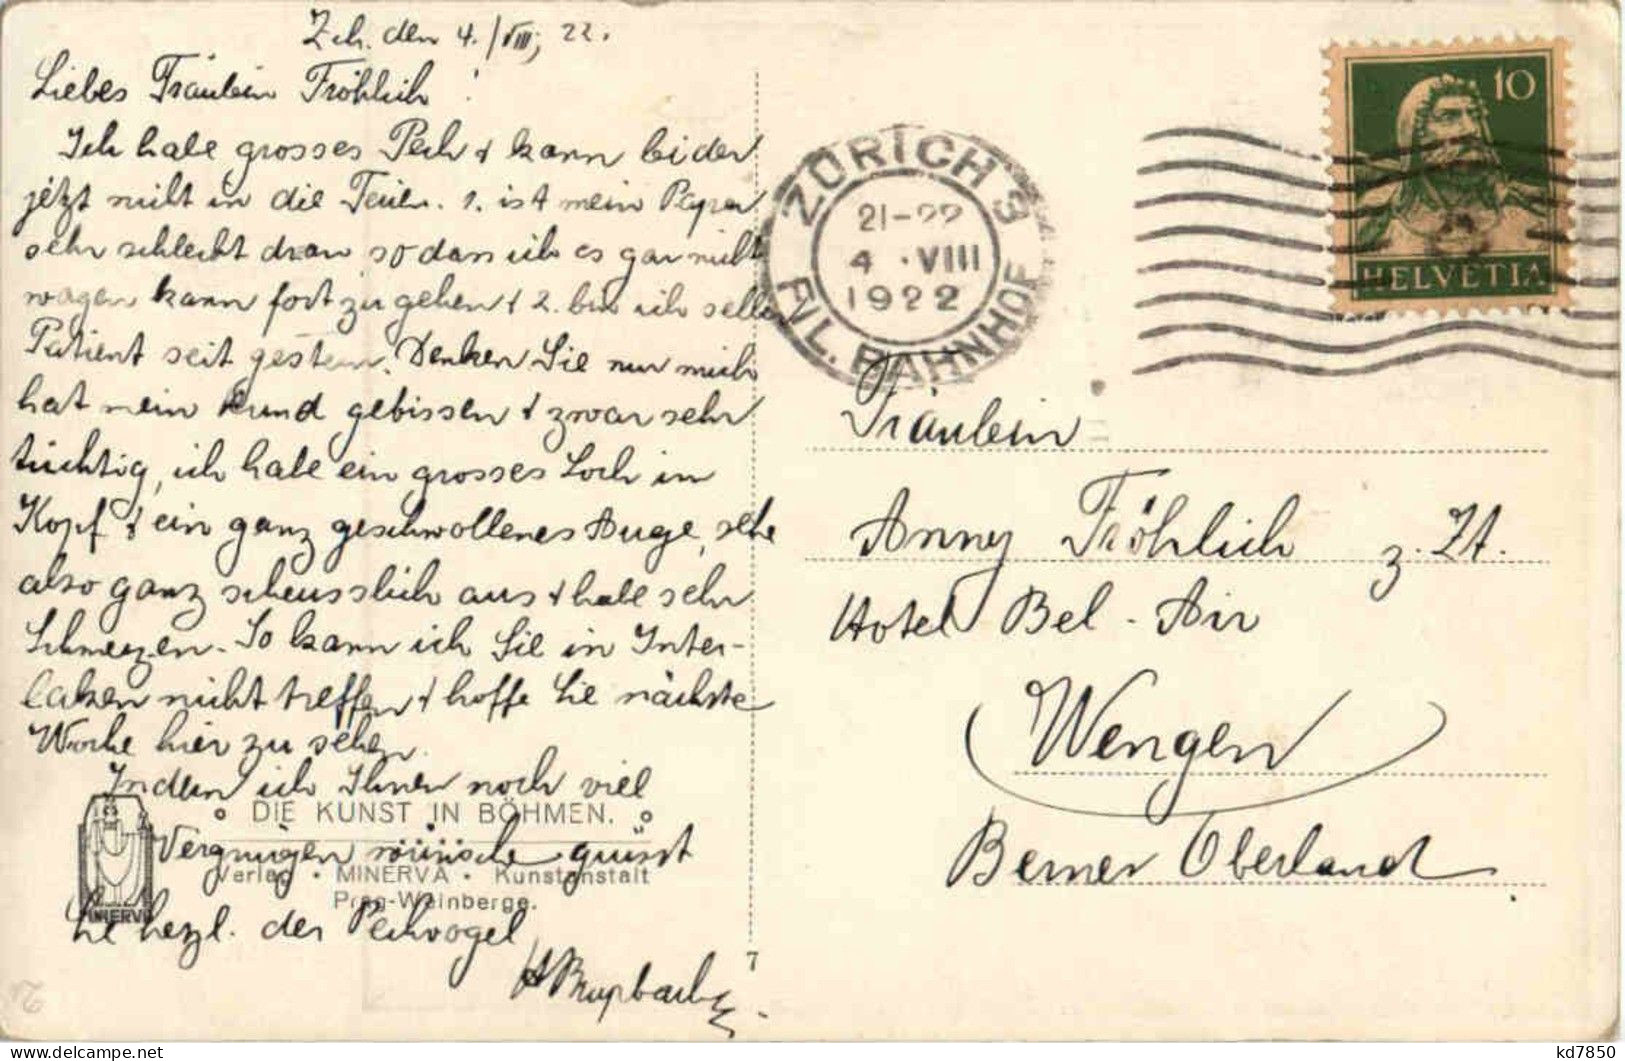 Zch. den 4./VIII, 22.
Liebes Fräulein Fröhlich!
Ich habe grosses Pech & kann leider
jetzt nicht in die Ferien. 1. ist mein Papa
sehr schlecht dran so dass ich es gar nicht
wagen kann fort zu gehen & 2. bin ich selber
Patient seit gestern. Denken Sie nur mich
hat mein Hund gebissen & zwar sehr
tüchtig, ich habe ein grosses Loch im
Kopf & ein ganz geschwollenes Auge, sehe
also ganz scheusslich aus & habe sehr
Schmerzen. So kann ich Sie in Inter-
laken nicht treffen & hoffe Sie nächste
Woche hier zu sehen.
Indem ich Ihnen noch viel
Vergnügen wünsche grüsst
Sie herzl. der Pechvogel
DIE KUNST IN BÖHMEN.
Verlag • MINERVA • Kunstanstalt
Prag-Weinberge.
MINERVA
7
ZÜRICH 9
21-22
4 • VIII
1922
FIL. BAHNHOF
10
HELVETIA
Fräulein
Anny Fröhlich z. Zt.
Hotel Bel-Air
Wengen
Berner Oberland
kd7850